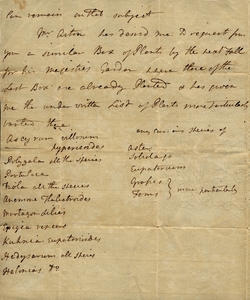 can remain on that subject
Mr. Aiton has desired me to request from
you a similar Box of Plants by the next fall
for his majesties Garden have three of the
last Box are already Planted & has given
me the under written List of Plants more particularly
wanted
Ascyrum villosum
hypericoides
Polygala all the species
Portulaca
Viola all the species
Anemone Thalictroides
Martagon lilies
Epigea repens
Kuhnia eupatorioides
Hedysarum all species
Helonias &c
any curious species of
Aster
Solidago
Eupatorium
Grapes
Ferns } more particularly